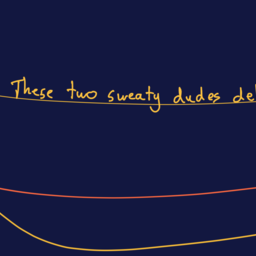 These two sweaty dudes de